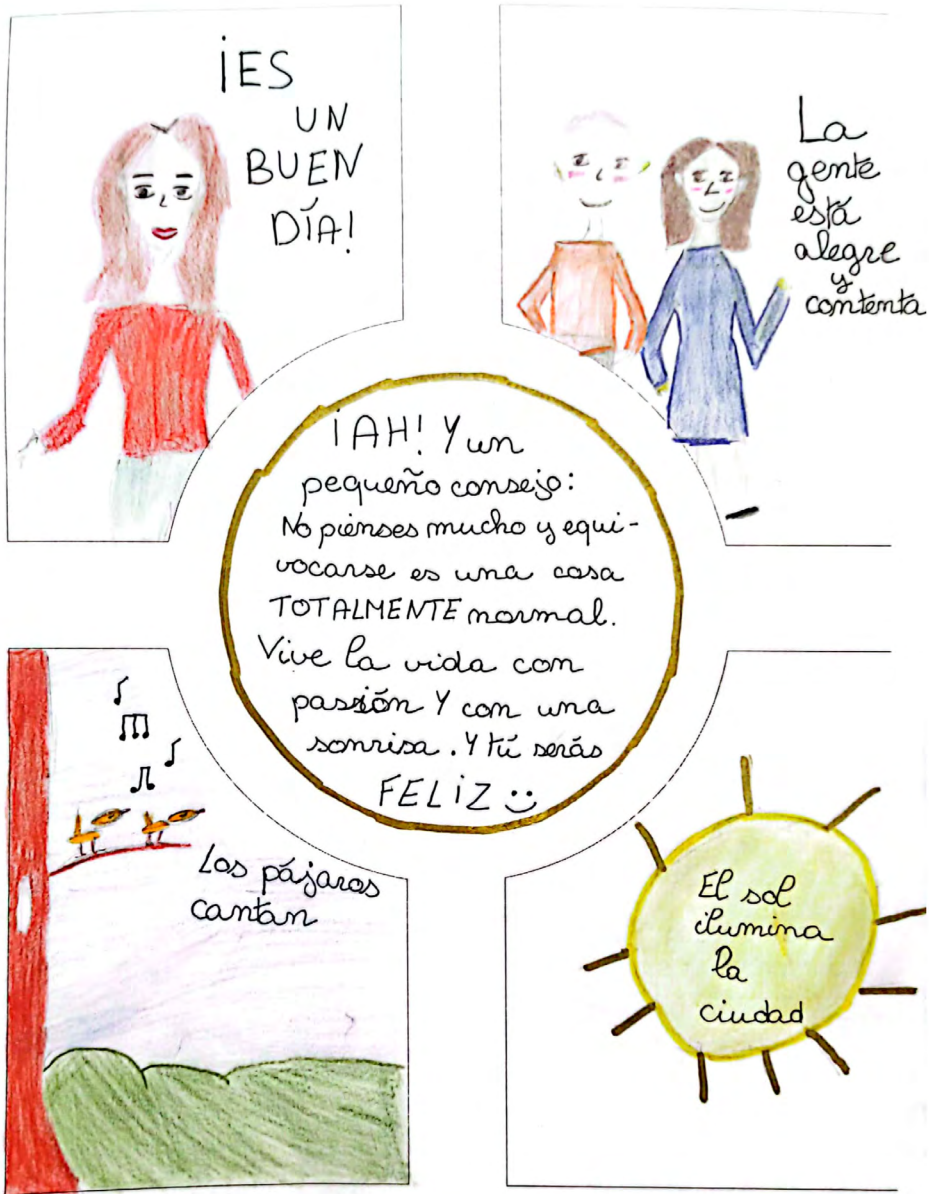 ¡ES
UN
BUEN
DÍA!
La
gente
está
alegre
y
contenta
¡AH! Y un
pequeño consejo:
No piénses mucho y equi-
vocarse es una cosa
TOTALMENTE normal.
Vive la vida con
passión Y con una
sonrisa. Y tú serás
FELIZ :)
Los pájaros
cantan
El sol
ilumina
la
ciudad